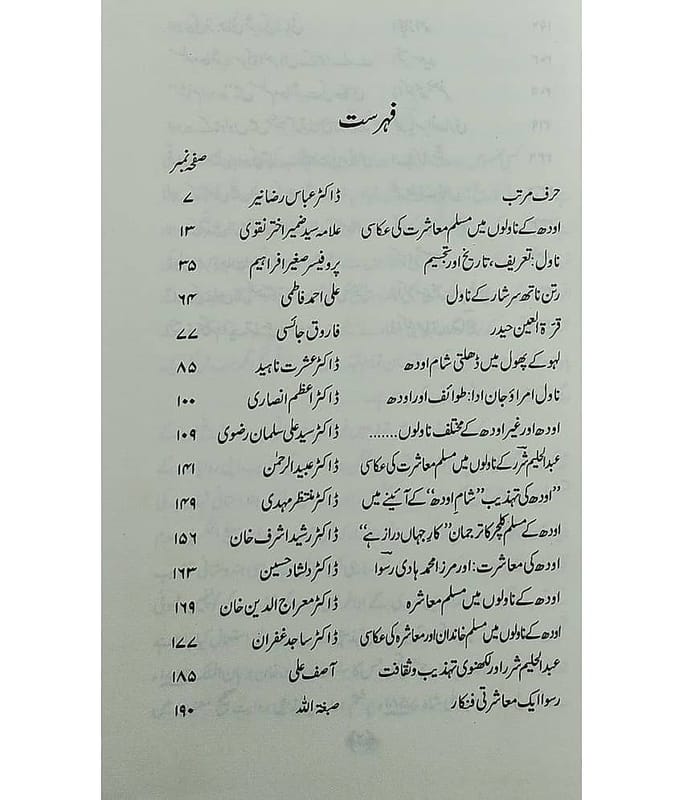 فہرست
صفحہ نمبر
حرف مرتب ڈاکٹر عباس رضا نیر ۷
اودھ کے ناولوں میں مسلم معاشرت کی عکاسی علامہ سید ضمیر اختر نقوی ۱۳
ناول: تعریف، تاریخ اور تجسیم پروفیسر صغیر افراہیم ۳۵
رتن ناتھ سرشار کے ناول علی احمد فاطمی ۶۴
قرۃ العین حیدر فاروق جائسی ۷۷
لہو کے پھول میں ڈھلتی شام اودھ ڈاکٹر عشرت ناہید ۸۵
ناول امراؤ جان ادا: طوائف اور اودھ ڈاکٹر اعظم انصاری ۱۰۰
اودھ اور غیر اودھ کے مختلف ناولوں....... ڈاکٹر سید علی سلمان رضوی ۱۰۹
عبدالحلیم شرر کے ناولوں میں مسلم معاشرت کی عکاسی ڈاکٹر عبید الرحمٰن ۱۴۱
”اودھ کی تہذیب ”شامِ اودھ“ کے آئینے میں ڈاکٹر منتظر مہدی ۱۴۹
اودھ کے مسلم کلچر کا ترجمان ”کارِ جہاں دراز ہے“ ڈاکٹر رشید اشرف خان ۱۵۶
اودھ کی معاشرت: اور مرزا محمد ہادی رسوا ڈاکٹر دلشاد حسین ۱۶۳
اودھ کے ناولوں میں مسلم معاشرہ ڈاکٹر معراج الدین خان ۱۶۹
اودھ کے ناولوں میں مسلم خاندان اور معاشرہ کی عکاسی ڈاکٹر ساجد غفران ۱۷۷
عبدالحلیم شرر اور لکھنوی تہذیب و ثقافت آصف علی ۱۸۵
رسوا ایک معاشرتی فنکار صبغۃ اللہ ۱۹۰